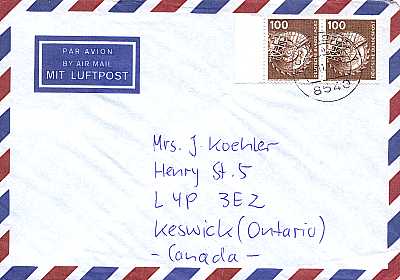 PAR AVION
BY AIR MAIL
MIT LUFTPOST
100
100
DEUTSCHE BUNDESPOST
DEUTSCHE BUNDESPOST
8540
Mrs. J. Koehler
Henry St. 5
L4P 3E2
Keswick (Ontario)
- Canada -